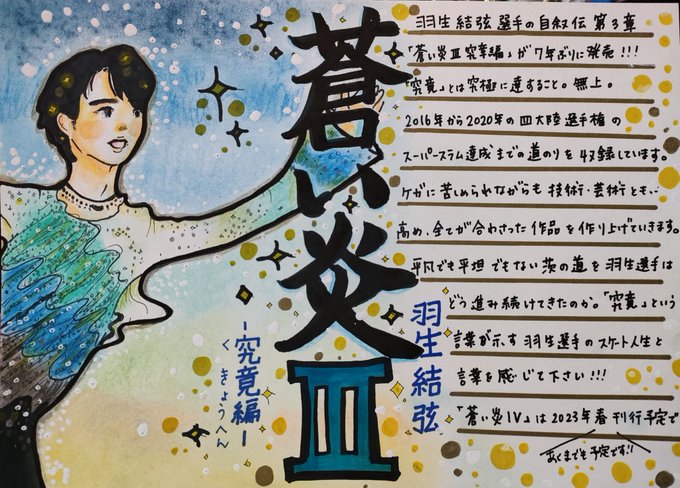 蒼い炎Ⅲ
-究竟編-
くきょうへん
羽生結弦
羽生結弦選手の自叙伝 第3章
「蒼い炎Ⅲ究竟編」が7年ぶりに発売!!!
「究竟」とは究極に達すること。無上。
2016年から2020年の四大陸選手権の
スーパースラム達成までの道のりを収録しています。
ケガに苦しめられながらも技術・芸術ともに
高め、全てが合わさった作品を作り上げていきます。
平凡でも平坦でもない茨の道を羽生選手は
どう進み続けてきたのか。「究竟」という
言葉が示す羽生選手のスケート人生と
言葉を感じて下さい!!!
「蒼い炎Ⅳ」は2023年春刊行予定で
あくまでも予定です!!